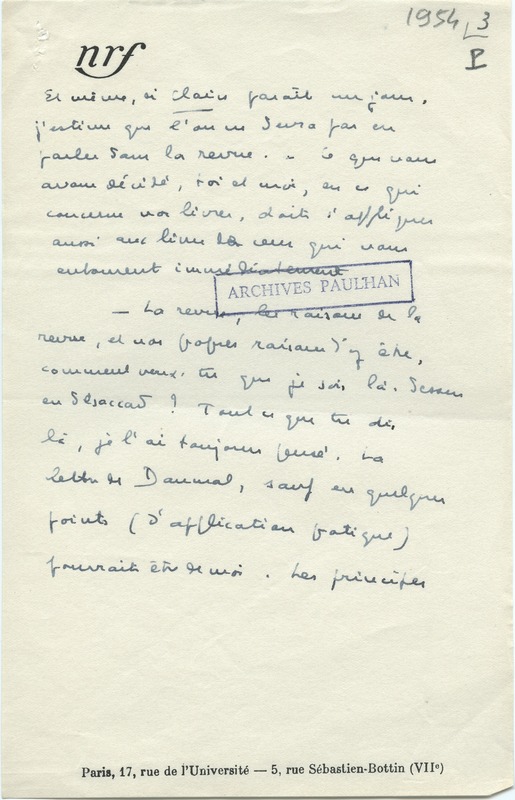 1954 3
P
nrf
Et même, si Clair paraît un jour,
j'estime que l'on ne devra pas en
parler dans la revue. - Ce que nous
avons décidé, toi et moi, en ce qui
concerne nos livres, doit s'appliquer
aussi aux livres de ceux qui nous
entourent immédiatement
ARCHIVES PAULHAN
— La revue, les raisons de la
revue, et nos propres raisons d'y être,
comment veux-tu que je sois là-dessus
en désaccord ? Tout ce que tu dis
là, je l'ai toujours pensé. La
lettre de Daumal, sauf en quelques
points (d'application pratique)
pourrait être de moi. Les principes
Paris, 17, rue de l'Université — 5, rue Sébastien-Bottin (VIIe)